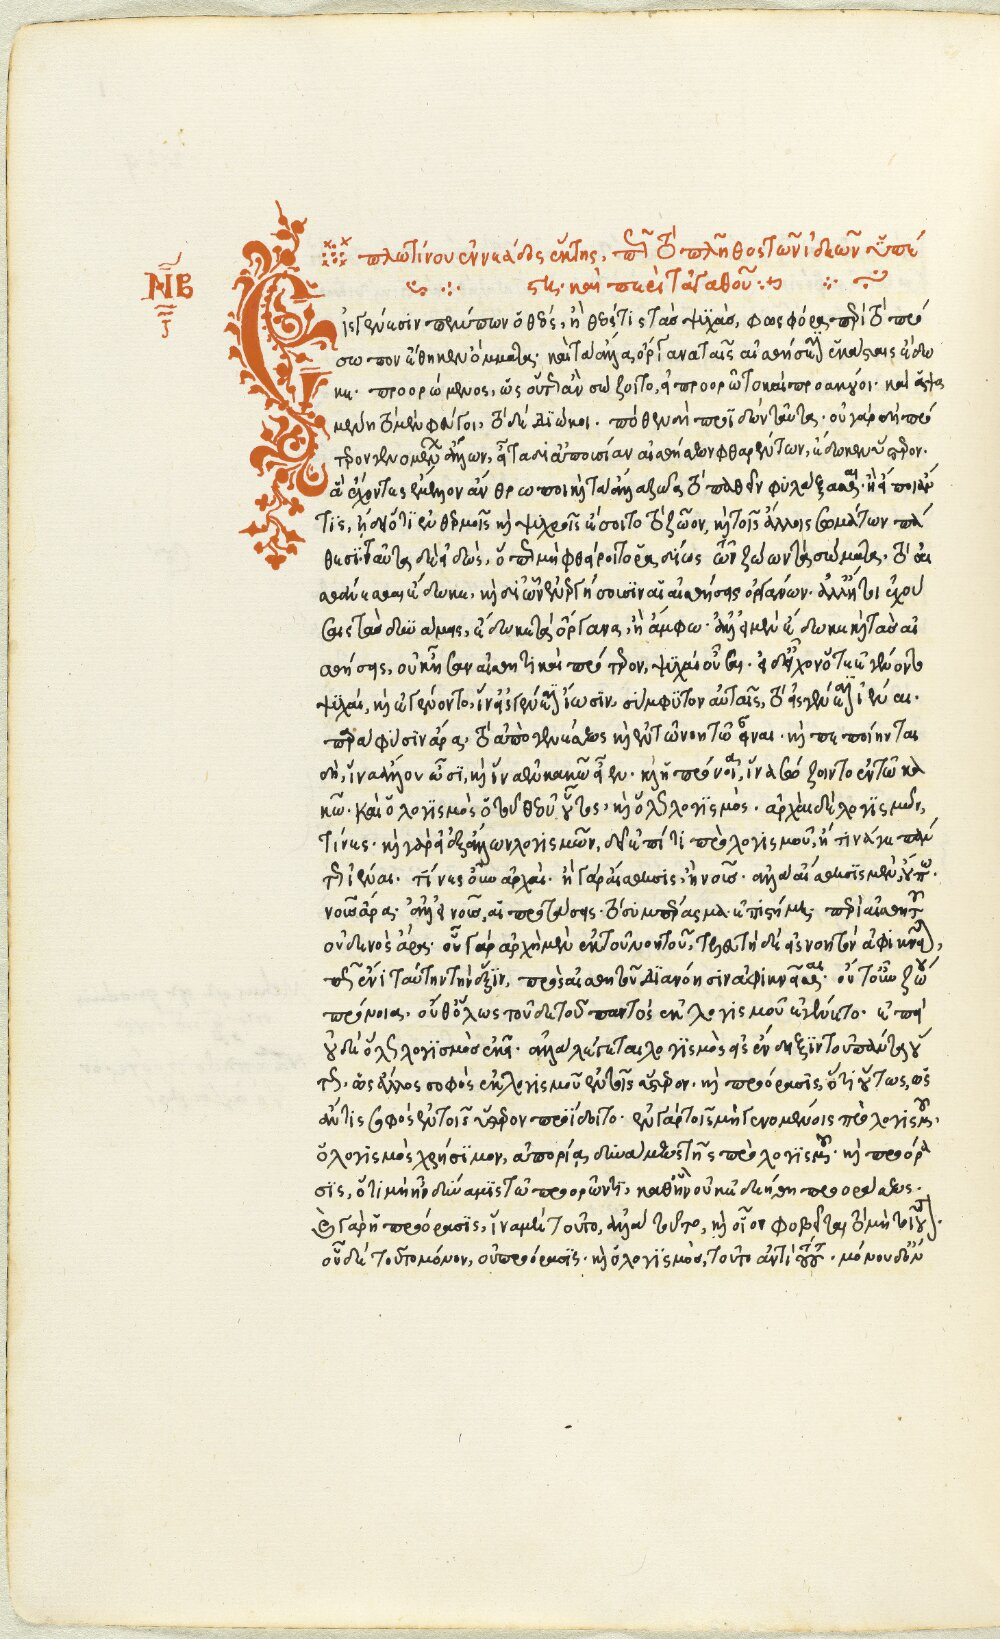 ΝΒ
πλωτίνου ἐννεάδος ἕκτης, πῶς τὸ πλῆθος τῶν ἰδεῶν ὑπέ
στη· καὶ περὶ τἀγαθοῦ
Εἰς γένεσιν πέμπων ὁ θεός, ἢ θεός τις τὰς ψυχὰς, φωσφόρα περὶ τὸ πρό
σωπον ἔθηκεν ὄμματα· καὶ τὰ ἄλλα ὄργανα ταῖς αἰσθήσεσιν ἑκάσταις ἔδω
κε· προορώμενος, ὡς οὕτως ἂν σώζοιτο, εἰ προορῷτο καὶ προακούοι· καὶ ἁψα
μένη τὸ μὲν φεύγοι, τὸ δὲ διώκοι. πόθεν δὴ προϊδὼν ταῦτα· οὐ γὰρ δὴ πρό
τερον γενομένων ἄλλων, εἶτα δι' ἀπουσίαν αἰσθήσεων φθαρέντων, ἔδωκεν ὕστερον.
ἃ ἔχοντες ἔμελλον ἄνθρωποι καὶ τὰ ἄλλα ζῷα τὸ παθεῖν φυλάξασθαι. ἢ εἴποι ἄν
τις, ᾔδει ὅτι ἐν θερμοῖς καὶ ψυχροῖς ἔσοιτο τὸ ζῷον, καὶ τοῖς ἄλλοις σωμάτων πά
θεσι· ταῦτα δὲ εἰδὼς, ὅπως μὴ φθείροιτο ῥᾳδίως τῶν ζῴων τὰ σώματα, τὸ αἰ
σθάνεσθαι ἔδωκε, καὶ δι' ὧν ἐνεργήσουσιν αἱ αἰσθήσεις ὀργάνων. ἀλλ' ἤτοι ἐχού
σαις τὰς δυνάμεις, ἔδωκε τὰ ὄργανα, ἢ ἄμφω. ἀλλ' εἰ μὲν ἔδωκε καὶ τὰς αἰ
σθήσεις, οὐκ ἦσαν αἰσθητικαὶ πρότερον, ψυχαὶ οὖσαι. εἰ δ' εἶχον ὅτε ἐγένοντο
ψυχαί, καὶ ἐγένοντο, ἵν' εἰς γένεσιν ἴωσιν, σύμφυτον αὐταῖς, τὸ εἰς γένεσιν ἰέναι.
παρὰ φύσιν ἄρα, τὸ ἀπὸ γενέσεως καὶ ἐν τῷ νοητῷ εἶναι. καὶ πεποίηνται
δὴ, ἵνα ἄλλου ὦσι, καὶ ἵνα ἐν κακῷ εἶεν. καὶ ἡ πρόνοια, ἵνα σώζοιντο ἐν τῷ κα
κῷ. καὶ ὁ λογισμὸς ὁ τοῦ θεοῦ οὗτος, καὶ ὅλως λογισμός. ἀρχαὶ δὲ λογισμῶν,
τίνες. καὶ γὰρ εἰ ἐξ ἄλλων λογισμῶν, δεῖ ἐπί τι πρὸ λογισμοῦ, ἤ τινά γε πάν
τως ἰέναι. τίνες οὖν ἀρχαί. ἢ γὰρ αἴσθησις, ἢ νοῦς. ἀλλὰ αἴσθησις μὲν, οὔπω.
νοῦς ἄρα. ἀλλ' εἰ νοῦς, αἱ προτάσεις. τὸ συμπέρασμα ἐπιστήμη. περὶ αἰσθητοῦ
οὐδενὸς ἄρα. οὗ γὰρ ἀρχὴ μὲν ἐκ τοῦ νοητοῦ, τελευτὴ δὲ εἰς νοητὸν ἀφικνεῖται,
πῶς ἔνι ταύτην τὴν ἕξιν, πρὸς αἰσθητοῦ διανόησιν ἀφικνεῖσθαι. οὔτ' οὖν ζῴου
πρόνοια, οὔθ' ὅλως τοῦδε τοῦ παντὸς ἐκ λογισμοῦ ἐγένετο. ἐπεὶ
οὐδὲ ὅλως λογισμὸς ἐκεῖ. ἀλλὰ λέγεται λογισμὸς εἰς ἔνδειξιν τοῦ πάντα οὕ
τως, ὡς ἄλλος σοφὸς ἐκ λογισμοῦ ἐν τοῖς ὕστερον. καὶ προόρασις, ὅτι οὕτως, ὡς
ἄν τις σοφὸς ἐν τοῖς ὕστερον προΐδοιτο. ἐν γὰρ τοῖς μὴ γενομένοις πρὸ λογισμοῦ,
ὁ λογισμὸς χρήσιμον, ἀπορίᾳ δυνάμεως τῆς πρὸ λογισμοῦ. καὶ προόρα
σις, ὅτι μὴ ἦν δύναμις τῷ προορῶντι, καθ' ἣν οὐκ ἐδεήθη προοράσεως.
καὶ γὰρ ἡ προόρασις, ἵνα μὴ τοῦτο, ἀλλὰ τοῦτο, καὶ οἷον φοβεῖται τὸ μὴ τοιοῦτον.
οὗ δὲ τοῦτο μόνον, οὐ προόρασις. καὶ ὁ λογισμὸς, τοῦτο ἀντὶ τούτου. μόνου δ' ὄν